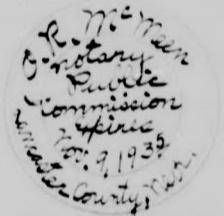 J. R. McMeen
Notary
Public
Commission
expires
Nov. 9, 1935
Lancaster County, Nebr.